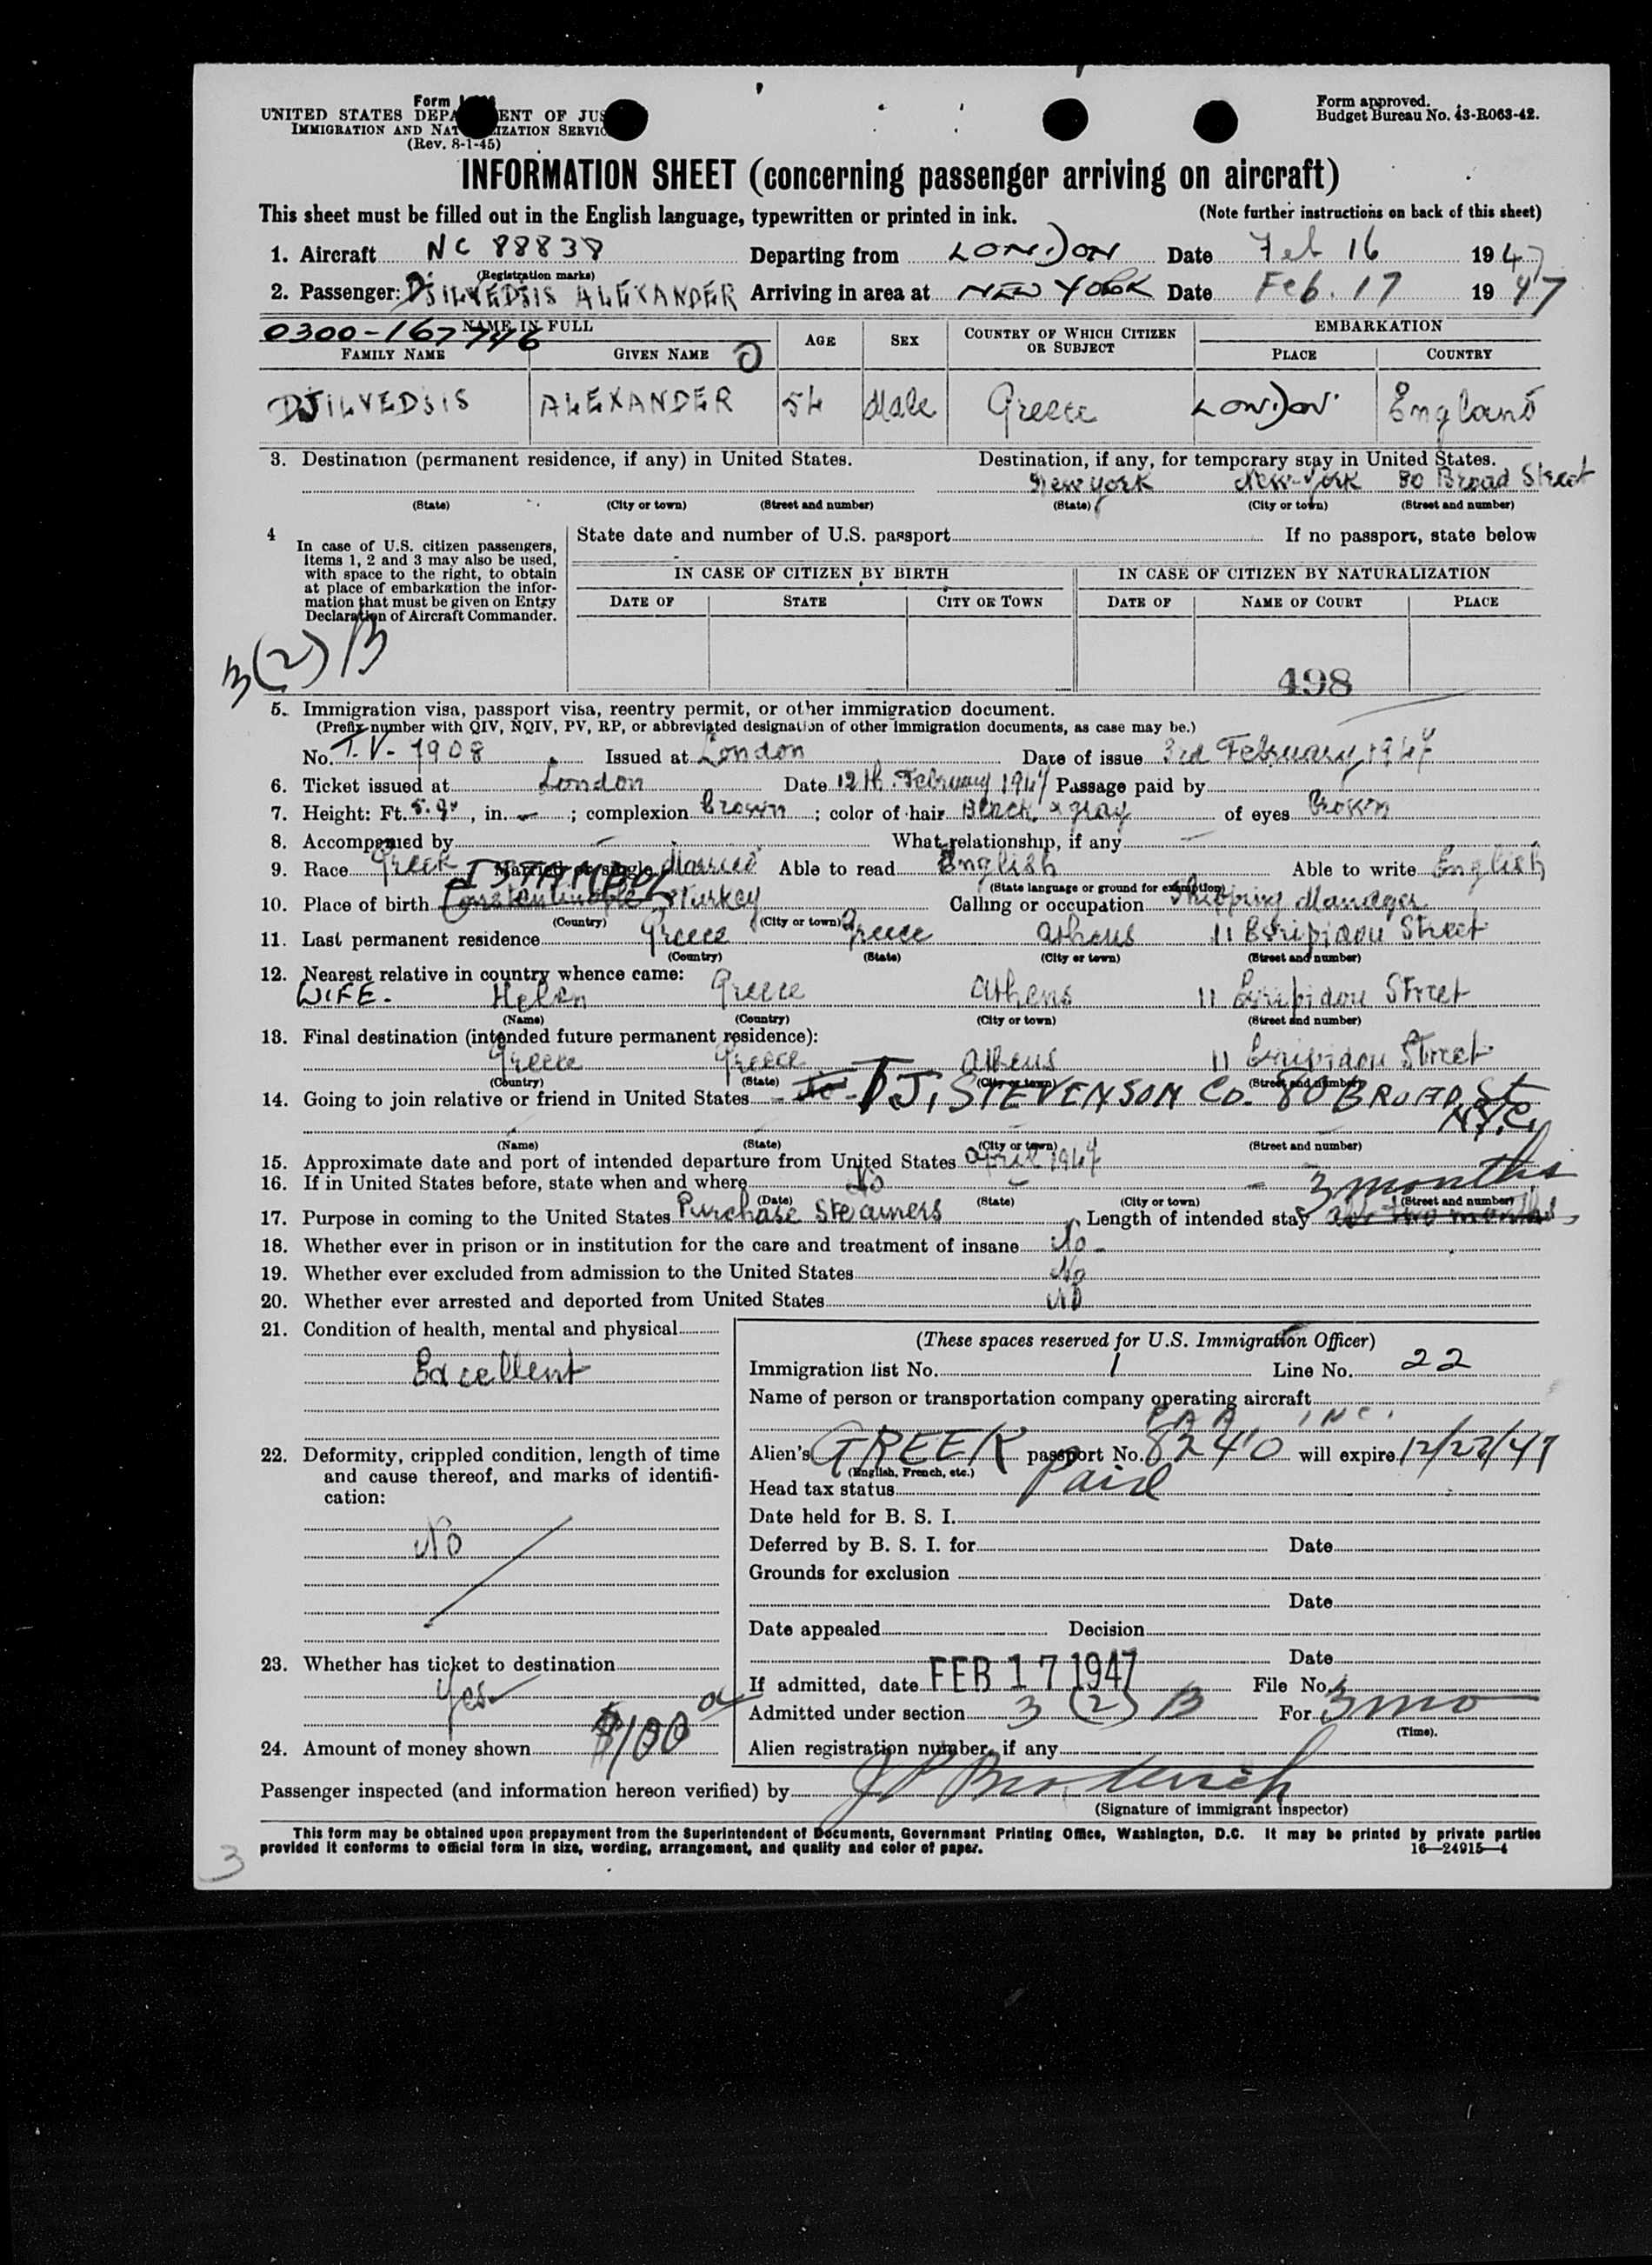 Form
UNITED STATES DEPA ENT OF JUS
IMMIGRATION AND NAT IZATION SERVIC
(Rev. 8-1-45)
Form approved.
Budget Bureau No. 43-R063-42.
INFORMATION SHEET (concerning passenger arriving on aircraft)
This sheet must be filled out in the English language, typewritten or printed in ink. (Note further instructions on back of this sheet)
1. Aircraft NC 88838 Departing from LONDON Date Feb 16 1947
(Registration marks)
2. Passenger: DJILVEDSIS ALEXANDER Arriving in area at NEW YORK Date Feb. 17 1947
0300-167746 NAME IN FULL AGE SEX COUNTRY OF WHICH CITIZEN OR SUBJECT EMBARKATION
FAMILY NAME GIVEN NAME PLACE COUNTRY
DJILVEDSIS ALEXANDER 54 Male Greece LONDON England
3. Destination (permanent residence, if any) in United States. Destination, if any, for temporary stay in United States.
New York New-York 80 Broad Street
(State) (City or town) (Street and number) (State) (City or town) (Street and number)
4 In case of U.S. citizen passengers, items 1, 2 and 3 may also be used, with space to the right, to obtain at place of embarkation the information that must be given on Entry Declaration of Aircraft Commander.
State date and number of U.S. passport If no passport, state below
IN CASE OF CITIZEN BY BIRTH IN CASE OF CITIZEN BY NATURALIZATION
DATE OF STATE CITY OR TOWN DATE OF NAME OF COURT PLACE
3(2)B
498
5. Immigration visa, passport visa, reentry permit, or other immigration document.
(Prefix number with QIV, NQIV, PV, RP, or abbreviated designation of other immigration documents, as case may be.)
No. T.V- 1908 Issued at London Date of issue 3rd February 1947
6. Ticket issued at London Date 12th. February 1947 Passage paid by
7. Height: Ft. 5.9", in. - ; complexion Brown ; color of hair Black & gray of eyes Brown
8. Accompanied by - What relationship, if any -
9. Race Greek Married or single Married Able to read English Able to write English
(State language or ground for exemption)
ISTAMBOL
10. Place of birth Constantinople Turkey Calling or occupation Shipping Manager
(Country) (City or town)
11. Last permanent residence Greece Greece Athens 11 Evripidou Street
(Country) (State) (City or town) (Street and number)
12. Nearest relative in country whence came:
WIFE- Helen Greece Athens 11 Evripidou Street
(Name) (Country) (City or town) (Street and number)
13. Final destination (intended future permanent residence):
Greece Greece Athens 11 Evripidou Street
(Country) (State) (City or town) (Street and number)
14. Going to join relative or friend in United States T.J. STEVENSON Co. 80 BROAD St
N.Y.C.
(Name) (State) (City or town) (Street and number)
15. Approximate date and port of intended departure from United States April 1947
16. If in United States before, state when and where No - -
(Date) (State) (City or town) (Street and number)
3 months
17. Purpose in coming to the United States Purchase Steamers Length of intended stay two months
18. Whether ever in prison or in institution for the care and treatment of insane No -
19. Whether ever excluded from admission to the United States No
20. Whether ever arrested and deported from United States No
21. Condition of health, mental and physical
Excellent
22. Deformity, crippled condition, length of time and cause thereof, and marks of identification:
No
23. Whether has ticket to destination
Yes
24. Amount of money shown $100
(These spaces reserved for U.S. Immigration Officer)
Immigration list No. 1 Line No. 22
Name of person or transportation company operating aircraft
P A A INC.
Alien's GREEK passport No. 8240 will expire 12/23/47
(English, French, etc.)
Head tax status paid
Date held for B. S. I.
Deferred by B. S. I. for Date
Grounds for exclusion
Date
Date appealed Decision
Date
If admitted, date FEB 17 1947 File No.
Admitted under section 3 (2) B For 3 mo
(Time).
Alien registration number, if any
Passenger inspected (and information hereon verified) by
(Signature of immigrant inspector)
This form may be obtained upon prepayment from the Superintendent of Documents, Government Printing Office, Washington, D.C. It may be printed by private parties
provided it conforms to official form in size, wording, arrangement, and quality and color of paper. 16—24915—4
3